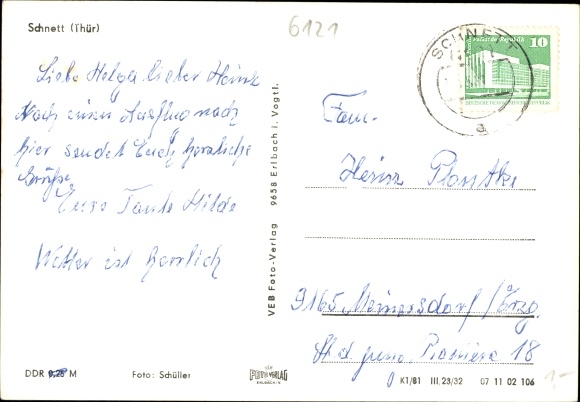 Schnett (Thür)
6121
Liebe Helga lieber Heinz
Nach einen Ausflug nach
hier sendet Euch herzliche
Grüße
Eure Tante Hilde
Wetter ist herrlich
VEB Foto-Verlag 9658 Erlbach i. Vogtl.
SCHNETT
a
10
Fam.
Heinz
9165 Meinersdorf/Erzg.
Str. d. jung. Pioniere 18
DDR 0,25 M
Foto: Schüller
FOTO VERLAG
ERLBACH/V.
K1/81 III.23/32 07 11 02 106
1,-